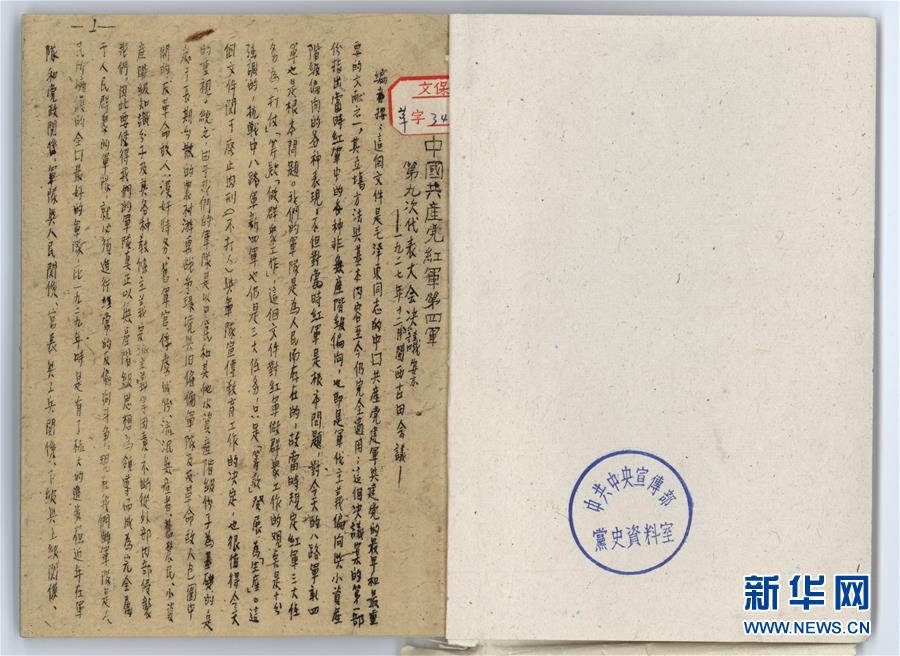 —1—
文保
革字34
中國共產党紅軍第四軍
第九次代表大会决議案
——一九二七年十二月閩西古田会議——
編者按：這個文件是毛澤東同志的中口共産党建軍與建党的最早和最重
要的文献之一，其立場方法與基本内容至今仍完全適用：這個决議案的第一部
份指出當時紅軍中的各种非無産階級偏向，也即是軍伐主義偏向與小資產
階級偏向的各种表現，不但對當時紅軍是根本問題，對今天的八路軍新四
軍也是根本問題。我們的軍隊是為人民而存在的，故當時規定紅軍三大任
务為「打仗」「筹款」「做群众工作」，這個文件對紅軍做群众工作的是十分
強調的，抗戰中八路軍新四軍也仍是三大任务，只是「筹款」發展為「生產」。這
個文件関于廢止肉刑（不打人）與軍隊宣傳教育工作的决定，也很值得今天
的重視。總之，由于我們的軍隊是以口民和其他小資產階級份子為基礎的，是
處于長期分散的農村游擊战争环境與旧軍隊及反革命敌人包圍中
間的，反革命敌人、漢奸特务、舊軍官、俘虜成份、流氓無産者、舊農民、小資
產階級知識分子及其各种教條主義因素不断從外部内部侵襲
我們，因此，要使得我們的軍隊真正以無產階級思想為領導而成為完全属
于人民群眾的軍隊，就必須進行經常的反偏向斗争。現在我們的軍隊是人
民所擁護的全口最好的軍隊，比一九二九年時是有了極大的進步，但近年在軍
隊和党政関係、軍隊與人民関係、官長與士兵関係、下級與上級関係、
中共中央宣傳部
黨史資料室
新华网
WWW.NEWS.CN